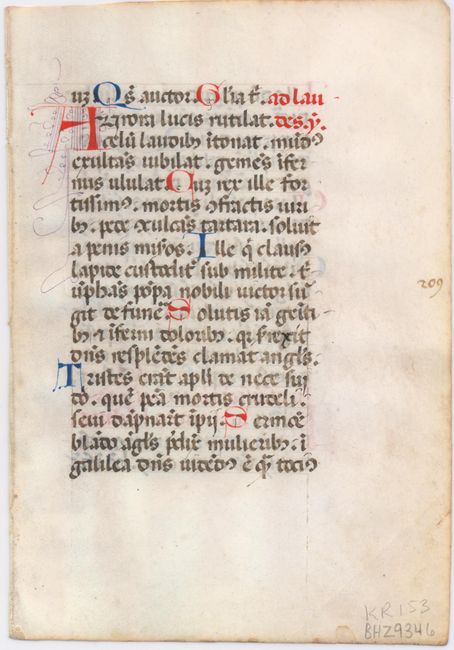 uz Qs̄ auctor. Glīa t̄. ad lau
Aurora lucis rutilat. des. ẏ.
celū laudibꝰ ītonat. mūdꝰ
exultās iubilat. gemēs īfer
nus ululat. Cuz rex ille for
tissimꝰ. mortis ꝯfractis uiri
bꝰ. pede ꝯculcās tartara. soluit
a penis mīsos. Ille q̄ clausꝰ
lapide custodit̄ sub milite. t̄
ūphās pōpa nobili uictor sur̄
git de funē. Solutis iā gemiti
bꝰ ⁊ īferni doloribꝰ. qr̄ surexit
dn̄s resplēdēs clamat angl̄s.
Tristes erāt apl̄i de nece sui
dn̄i. quē pena mortis crudeli.
seui dāpnarūt īpij. Sermōe
blādo āgl̄s p̄dix̄ mulieribꝰ. ī
galilea dn̄s uidēdꝰ ē qm̄ tociꝰ
209
KR 153
BHZ9346